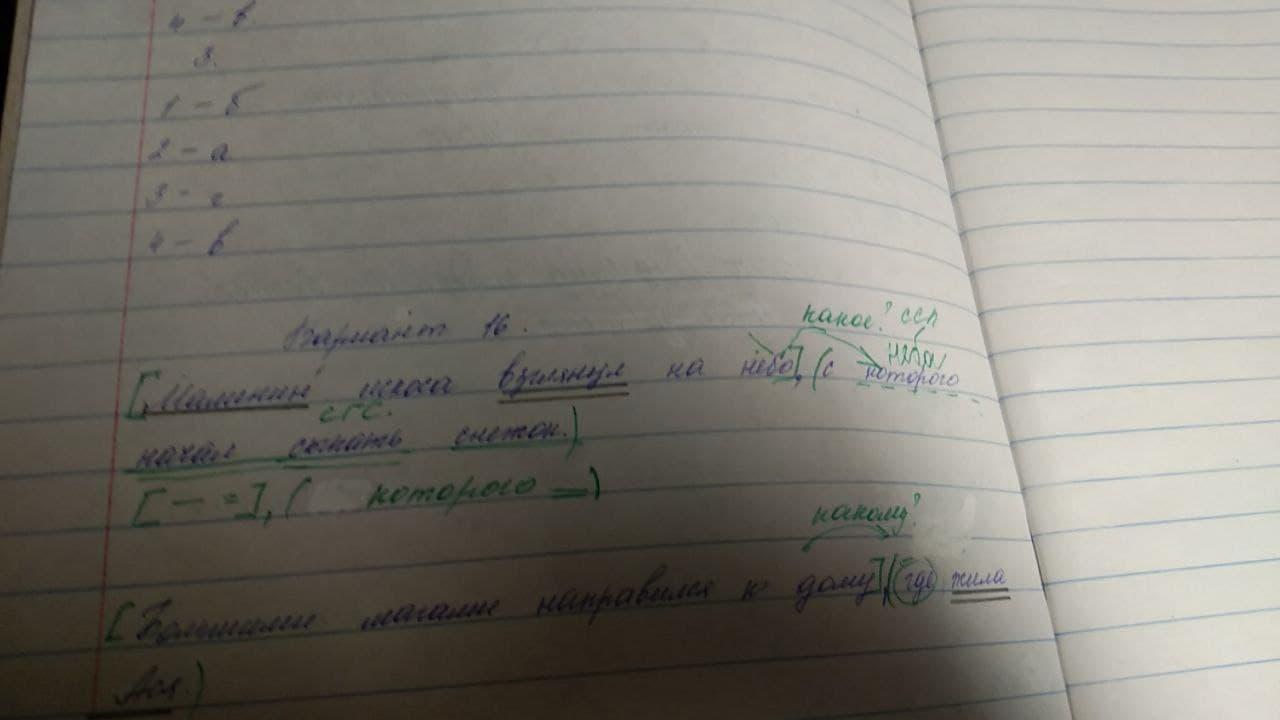 4 - в
3.
1 - б
2 - а
3 - г
4 - в
Вариант 16.
какое? ССП
неба
[Малинин искоса взглянул на небо], (с которого
СГС.
начал сыпать снежок.)
[— =], ( которого =)
какому?
[Большими шагами направился к дому], (где жила
Ася.)